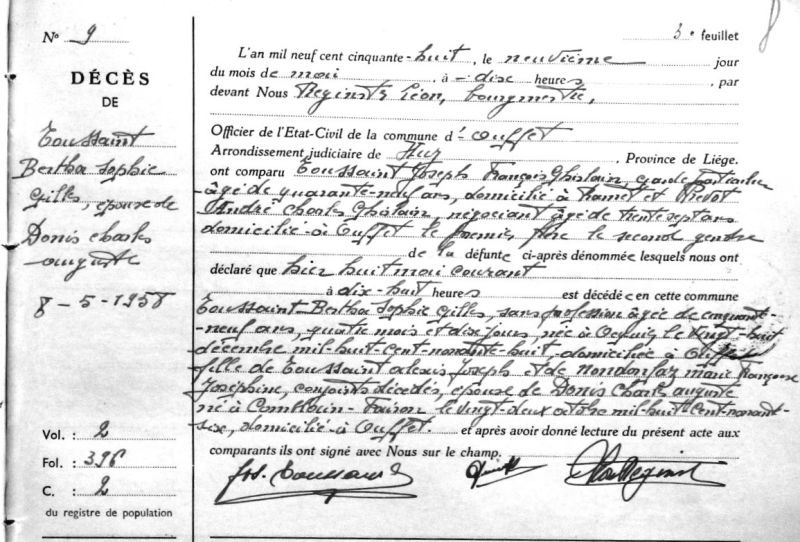 N° 9
DÉCÈS
DE
Toussaint
Bertha Sophie
Gilles, épouse de
Donis Charles
Auguste
8 - 5 - 1958
Vol. : 2
Fol. : 396
C. : 2
du registre de population
3e feuillet
8
L'an mil neuf cent cinquante-huit, le neuvième jour
du mois de mai, à - dix heures, par
devant Nous Reginster Léon, bourgmestre,
Officier de l'Etat-Civil de la commune d'Ouffet
Arrondissement judiciaire de Huy, Province de Liége.
ont comparu Toussaint Joseph François Ghislain, garde particulier
âgé de quarante-neuf ans, domicilié à Ramet et Prevot
André Charles Ghislain, négociant âgé de trente sept ans
domicilié à Ouffet le premier, frère le second gendre
de la défunte ci-après dénommée lesquels nous ont
déclaré que hier huit mai courant
à dix-huit heures est décédée en cette commune
Toussaint Bertha Sophie Gilles, sans profession âgée de cinquante-
-neuf ans, quatre mois et dix jours, née à Ocquier le vingt-huit
décembre mil-huit cent nonante-huit, domiciliée à Ouffet
fille de Toussaint Alexis Joseph et de Nondonfaz Marie Françoise
Joséphine, conjoints décédés, épouse de Donis Charles Auguste
né à Comblain-Fairon le vingt-deux octobre mil-huit cent nonant-
six, domicilié à Ouffet. et après avoir donné lecture du présent acte aux
comparants ils ont signé avec Nous sur le champ.
Jos. Toussaint